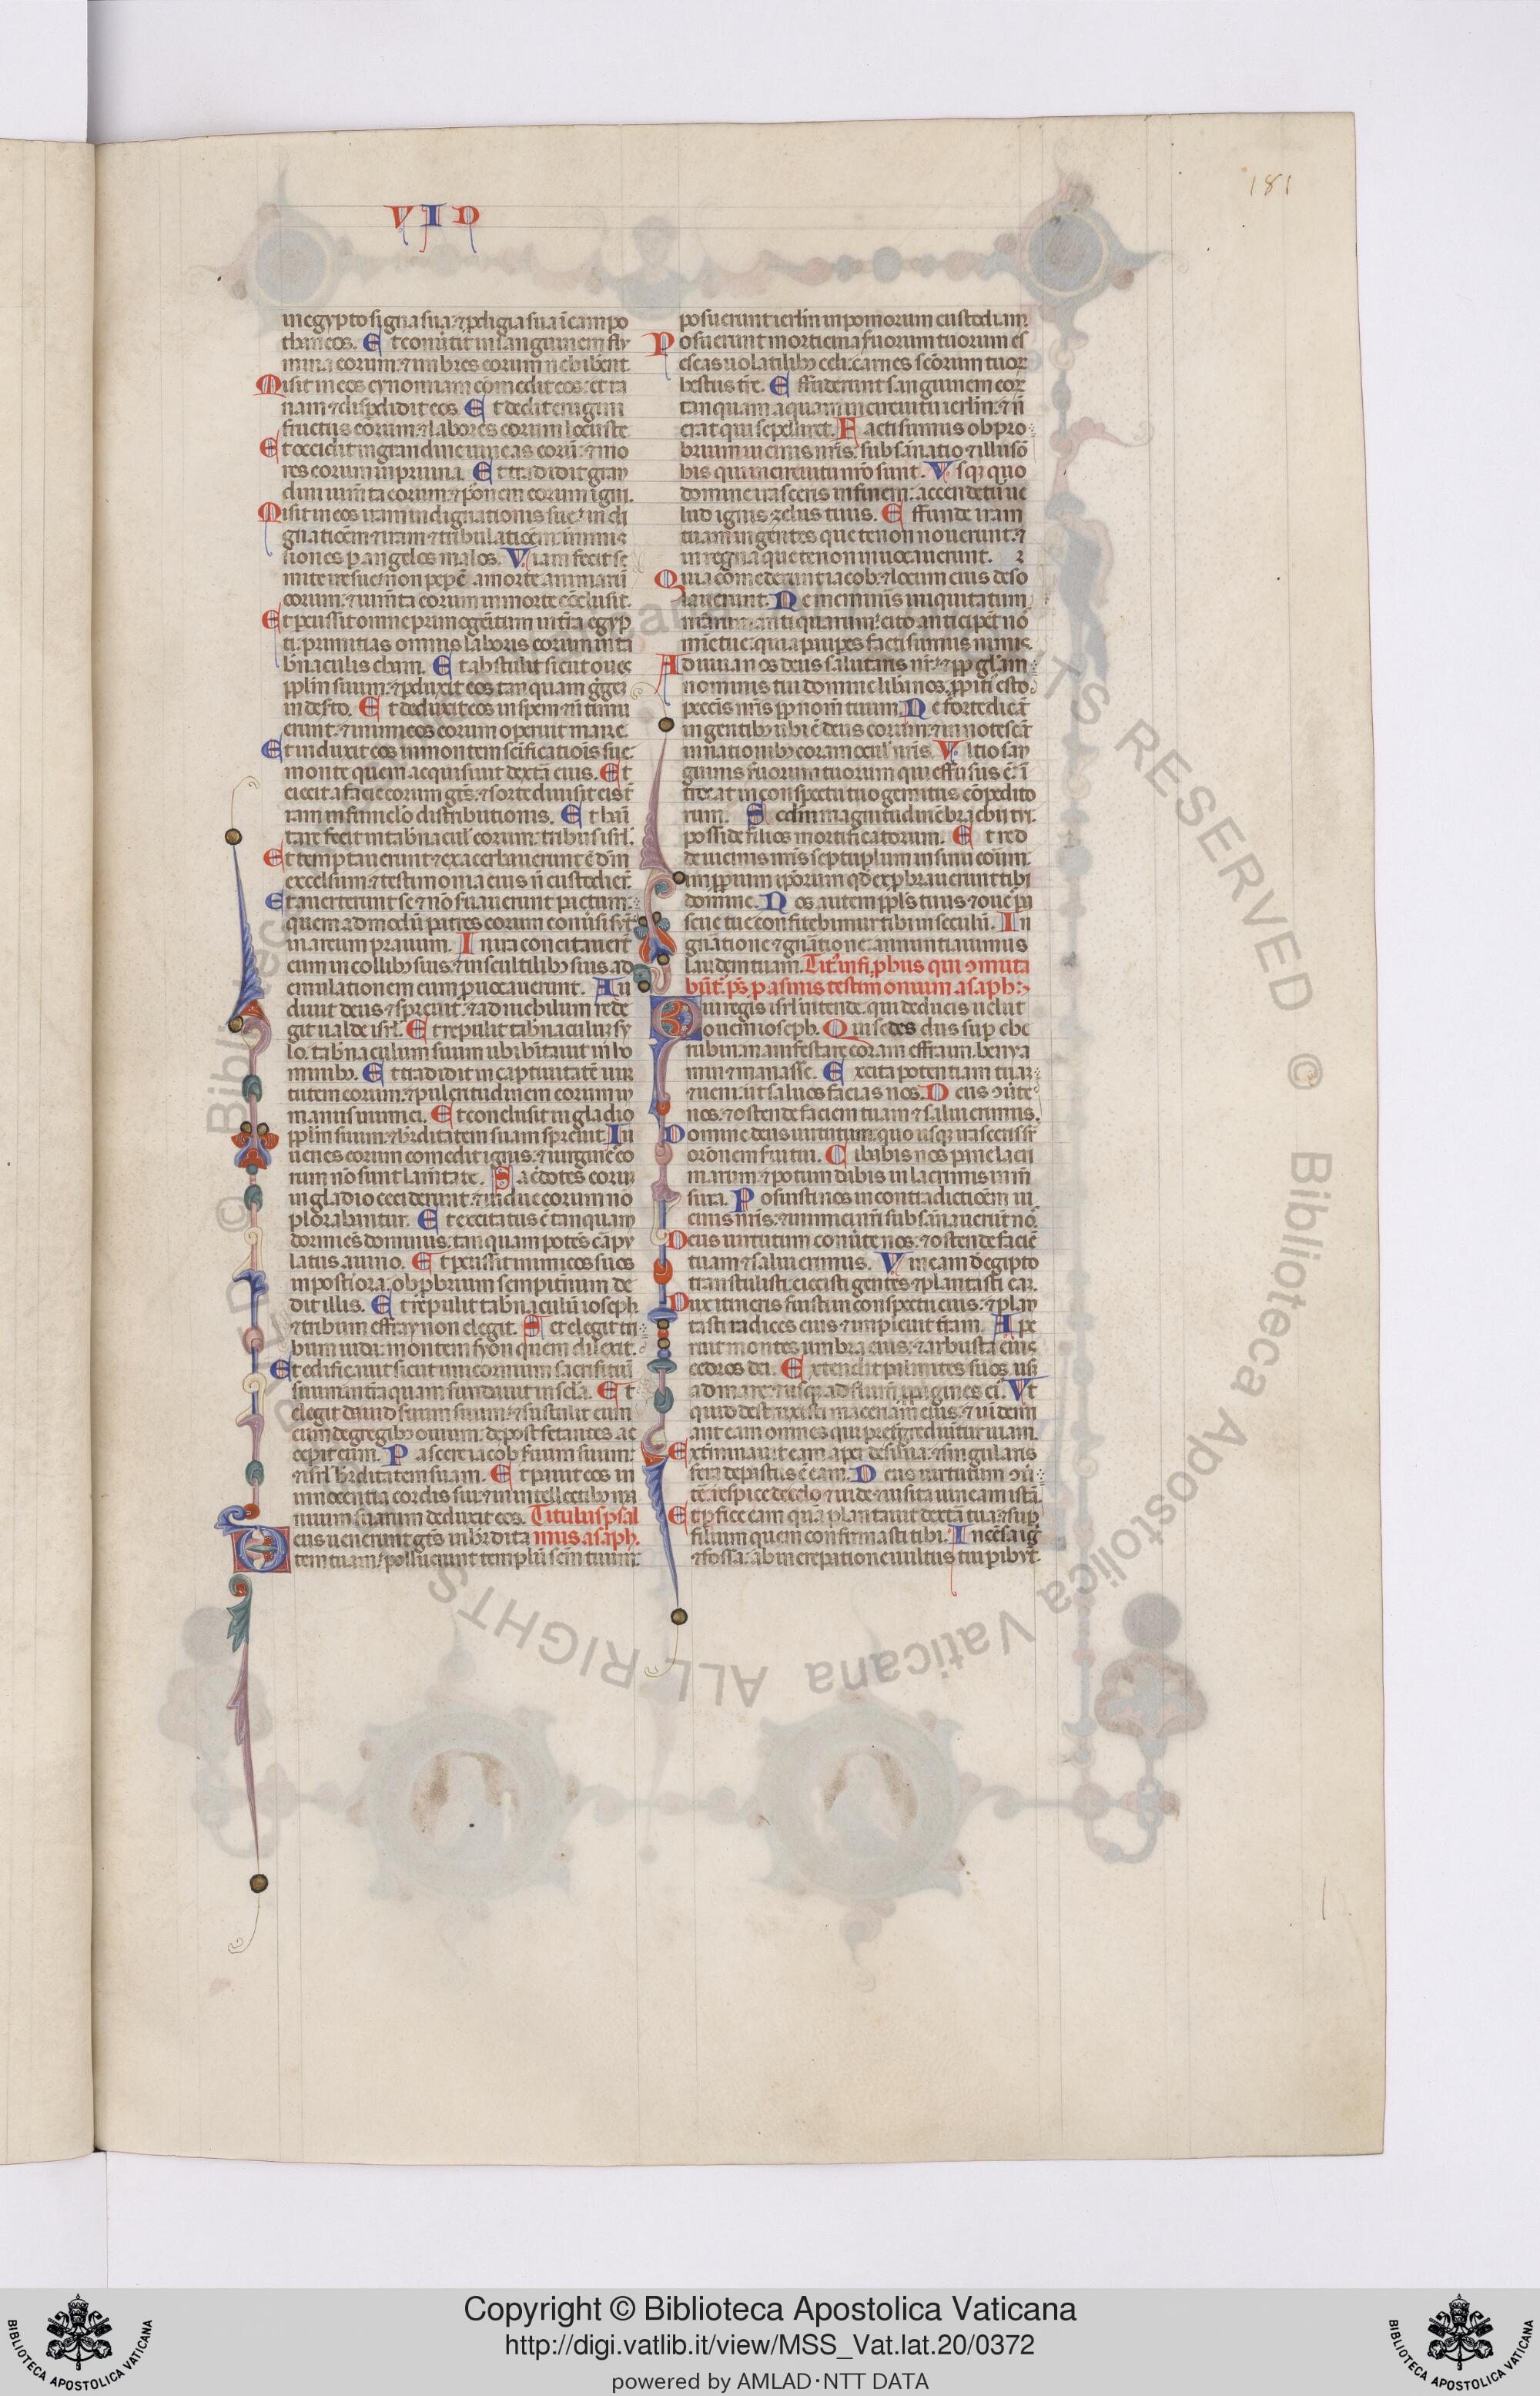 181
VID
in egypto signa sua. ⁊ p̃digia sua ĩ campo
thaneos. Et cõuertit in sanguinem flu
mina eorum. ⁊ imbres eorum ne biberẽt.
Misit in eos cynomiam ⁊ comedit eos. et ra
nam ⁊ disp̃didit eos. Et dedit erugini
fructus eorum. ⁊ labores eorum locuste.
Et occidit in grandine uineas eorũ. ⁊ mo
res eorum in pruina. Et tradidit gran
dini iumẽta eorum. ⁊ possessionem eorum igni.
Misit in eos iram indignationis sue. indi
gnatiõem ⁊ iram ⁊ tribulatiõem. inmis
siones p angelos malos. Viam fecit se
mite ire sue. ⁊ non pep̃cit a morte animarũ
eorum. ⁊ iumẽta eorum in morte cõclusit.
Et p̃cussit omne primogẽitum in tr̃a egyp
ti. primitias omnis laboris eorum in ta
b̃naculis cham. Et abstulit sicut oues
pp̃lm suum. ⁊ p̃duxit eos tanquam gregem
in des̃to. Et deduxit eos in spem ⁊ ñ timu
erunt. ⁊ inimicos eorum operuit mare.
Et induxit eos in montem sc̃ificatiõis sue.
montẽ quem acquisiuit dextera eius. Et
eiecit a facie eorum gẽtes. ⁊ sorte diuisit eis t̃
ram in funiculo distributionis. Et habi
tare fecit in tab̃nacul' eorum. tribus isrl'.
Et temptauerunt ⁊ exacerbauerunt dm̃
excelsum. ⁊ testimonia eius ñ custodierũt.
Et auerterunt se ⁊ nõ s̃uauerunt pactum.
quemadmodũ patres eorum conuersi sũt
in arcum prauum. In ira concitauerũt
eum in collib; suis. ⁊ in sculptilib; suis ad
emulationem eum p̃uocauerunt. Au
diuit deus ⁊ spreuit. ⁊ ad nichilum rede
git ualde isrl'. Et repulit tab̃naculum sy
lo. tab̃naculum suum ubi habitauit in ho
minib;. Et tradidit in captiuitatẽ uir
tutem eorum. ⁊ pulcritudinem eorum in
manus inimici. Et conclusit in gladio
pp̃lm suum. ⁊ h̃editatem suam spreuit. Iu
uenes eorum comedit ignis. ⁊ uirgines eo
rum nõ sunt lamẽtate. Sacerdotes eorũ
in gladio ceciderunt. ⁊ uidue eorum nõ
plorabantur. Et excitatus ẽ tanquam
dormiẽs dominus. tanquam potẽs c̃apu
latus a uino. Et p̃cussit inimicos suos
in posteriora. obp̃brium sempiternum de
dit illis. Et repulit tab̃naculũ ioseph.
⁊ tribum effraym non elegit. Set elegit tri
bum iuda. montem syon quem dilexit.
Et edificauit sicut unicornium sanctificiũ
suum. in t̃ra quam fundauit in secula. Et
elegit dauid seruum suum. ⁊ sustulit eum
eum de gregib; ouium. de post fetantes ac
cepit eum. Pascere iacob seruum suum.
⁊ isrl' h̃editatem suam. Et pauit eos in
innocentia cordis sui. ⁊ in intellectib; ma
nuum suarum deduxit eos. Titulus psal
mus asaph.
Deus uenerunt gẽtes in h̃edita
tem tuam. polluerunt templũ scm̃ tuum.
posuerunt ierlm̃ in pomorum custodiam.
Posuerunt morticina seruorum tuorum es
escas uolatilib; celi. carnes sc̃orum tuor̃
bestiis tr̃e. Effuderunt sanguinem eor̃
tanquam aquam in circuitu ierlm̃. ⁊ ñ
erat qui sepeliret. Facti sumus obpro
brium uicinis nr̃is. subsannatio ⁊ illusio
his qui in circuitu nr̃o sunt. Vsq; quo
domine irasceris in finem. accendetur ue
lud ignis zelus tuus. Effunde iram
tuam in gentes que te non nouerunt. ⁊
in regna que te non inuocauerunt.
Quia comederunt iacob. ⁊ locum eius deso
lauerunt. Ne memineris iniquitatum
nr̃arum antiquarum. cito anticipẽt nos
mĩe tue. quia pauperes facti sumus nimis.
Adiuua nos deus salutaris nr̃. ⁊ pp̃ gl'am
nominis tui domine libera nos. ⁊ p̃pitius esto
peccatis nr̃is pp̃ nom̃ tuum. Ne forte dicãt
in gentib; ubi ẽ deus eorum. ⁊ innotescat
in nationib; coram ocul' nr̃is. Vltio san
guinis seruorum tuorum qui effusus ẽ. ĩ
troeat in conspectu tuo gemitus cõpedito
rum. Secdm̃ magnitudinẽ brachii tui.
posside filios mortificatorum. Et red
de uicinis nr̃is septuplum in sinu eorum.
impp̃rium ip̃orum qd̃ exp̃brauerunt tibi
domine. Nos autem pp̃ls tuus ⁊ oues pa
scue tue. confitebimur tibi in seculũ. In
gñatione ⁊ gñatione. annuntiauimus
laudem tuam. Tit. in fi. p hiis qui ɔmuta
bũt. ps. p asiriis testimonium asaph.
Qui regis isrl' intende. qui deducis uelut
ouem ioseph. Qui sedes sup che
rubin. manifestare coram effraim. benia
min ⁊ manasse. Excita potentiam tuam
⁊ ueni. ut saluos facias nos. Deus ɔuerte
nos. ⁊ ostende faciem tuam ⁊ salui erimus.
Domine deus uirtutum. quo usq; irasceris sr̃
orõnem serui tui. Cibabis nos pane lacri
marum. ⁊ potum dabis in lacrimis in m̃
sura. Posuisti nos in contradictiõem ui
cinis nr̃is. ⁊ inimici nr̃i subsannauerũt nos.
Deus uirtutum conuerte nos. ⁊ ostende faciẽ
tuam ⁊ salui erimus. Vineam de egipto
transtulisti. eiecisti gentes ⁊ plantasti eam.
Dux itineris fuisti in conspectu eius. ⁊ plan
tasti radices eius ⁊ impleuit t̃ram. Ope
ruit montes umbra eius. ⁊ arbusta eius
cedros dei. Extendit palmites suos usq;
ad mare. ⁊ usq; ad flumẽ p̃pagines ei'. Vt
quid destruxisti maceriam eius. ⁊ uindemi
ant eam omnes qui p̃tergrediuntur uiam.
Exterminauit eam aper de silua. ⁊ singularis
fera depastus ẽ eam. Deus uirtutum ɔuer
te. respice de celo ⁊ uide. ⁊ uisita uineam istã.
Et p̃fice eam quã plantauit dextera tua. ⁊ sup
filium quem confirmasti tibi. Incẽsa igni
⁊ suffossa. ab increpatione uultus tui p̃ibũt.
© Biblioteca Apostolica Vaticana ALL RIGHTS RESERVED
Copyright © Biblioteca Apostolica Vaticana
http://digi.vatlib.it/view/MSS_Vat.lat.20/0372
powered by AMLAD·NTT DATA
BIBLIOTECA APOSTOLICA VATICANA
BIBLIOTECA APOSTOLICA VATICANA